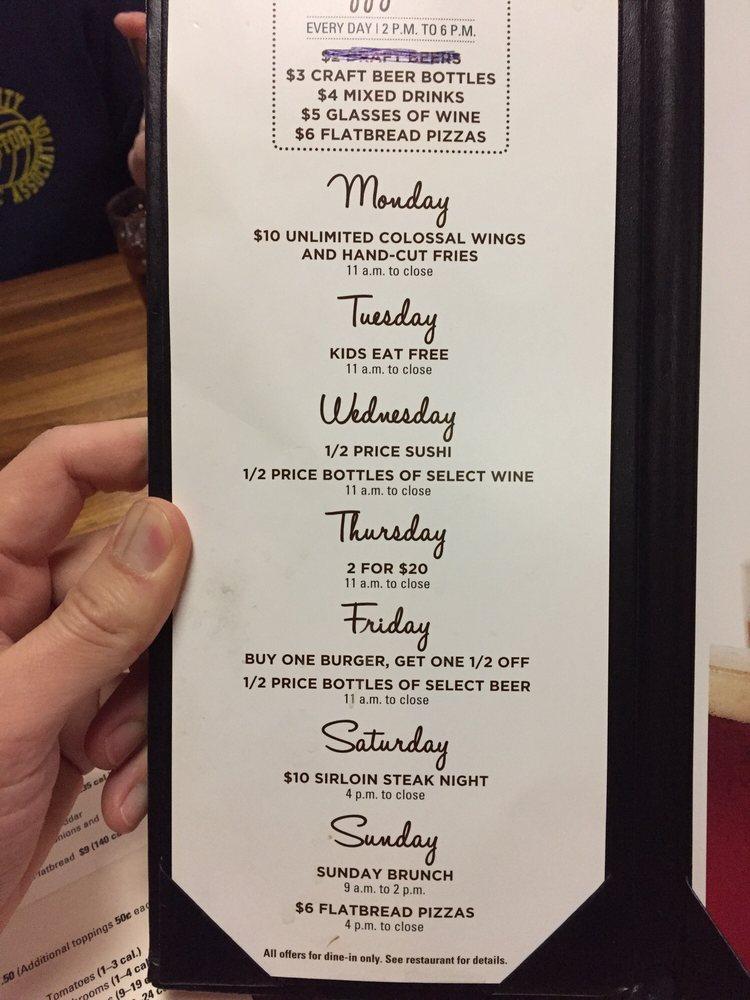 EVERY DAY | 2 P.M. TO 6 P.M.
$2 CRAFT BEERS
$3 CRAFT BEER BOTTLES
$4 MIXED DRINKS
$5 GLASSES OF WINE
$6 FLATBREAD PIZZAS
Monday
$10 UNLIMITED COLOSSAL WINGS
AND HAND-CUT FRIES
11 a.m. to close
Tuesday
KIDS EAT FREE
11 a.m. to close
Wednesday
1/2 PRICE SUSHI
1/2 PRICE BOTTLES OF SELECT WINE
11 a.m. to close
Thursday
2 FOR $20
11 a.m. to close
Friday
BUY ONE BURGER, GET ONE 1/2 OFF
1/2 PRICE BOTTLES OF SELECT BEER
11 a.m. to close
Saturday
$10 SIRLOIN STEAK NIGHT
4 p.m. to close
Sunday
SUNDAY BRUNCH
9 a.m. to 2 p.m.
$6 FLATBREAD PIZZAS
4 p.m. to close
All offers for dine-in only. See restaurant for details.
ASSOCIATION
$9 (140
.50 (Additional toppings 50¢
Tomatoes (1–3 cal.)
(1–4
(9–19